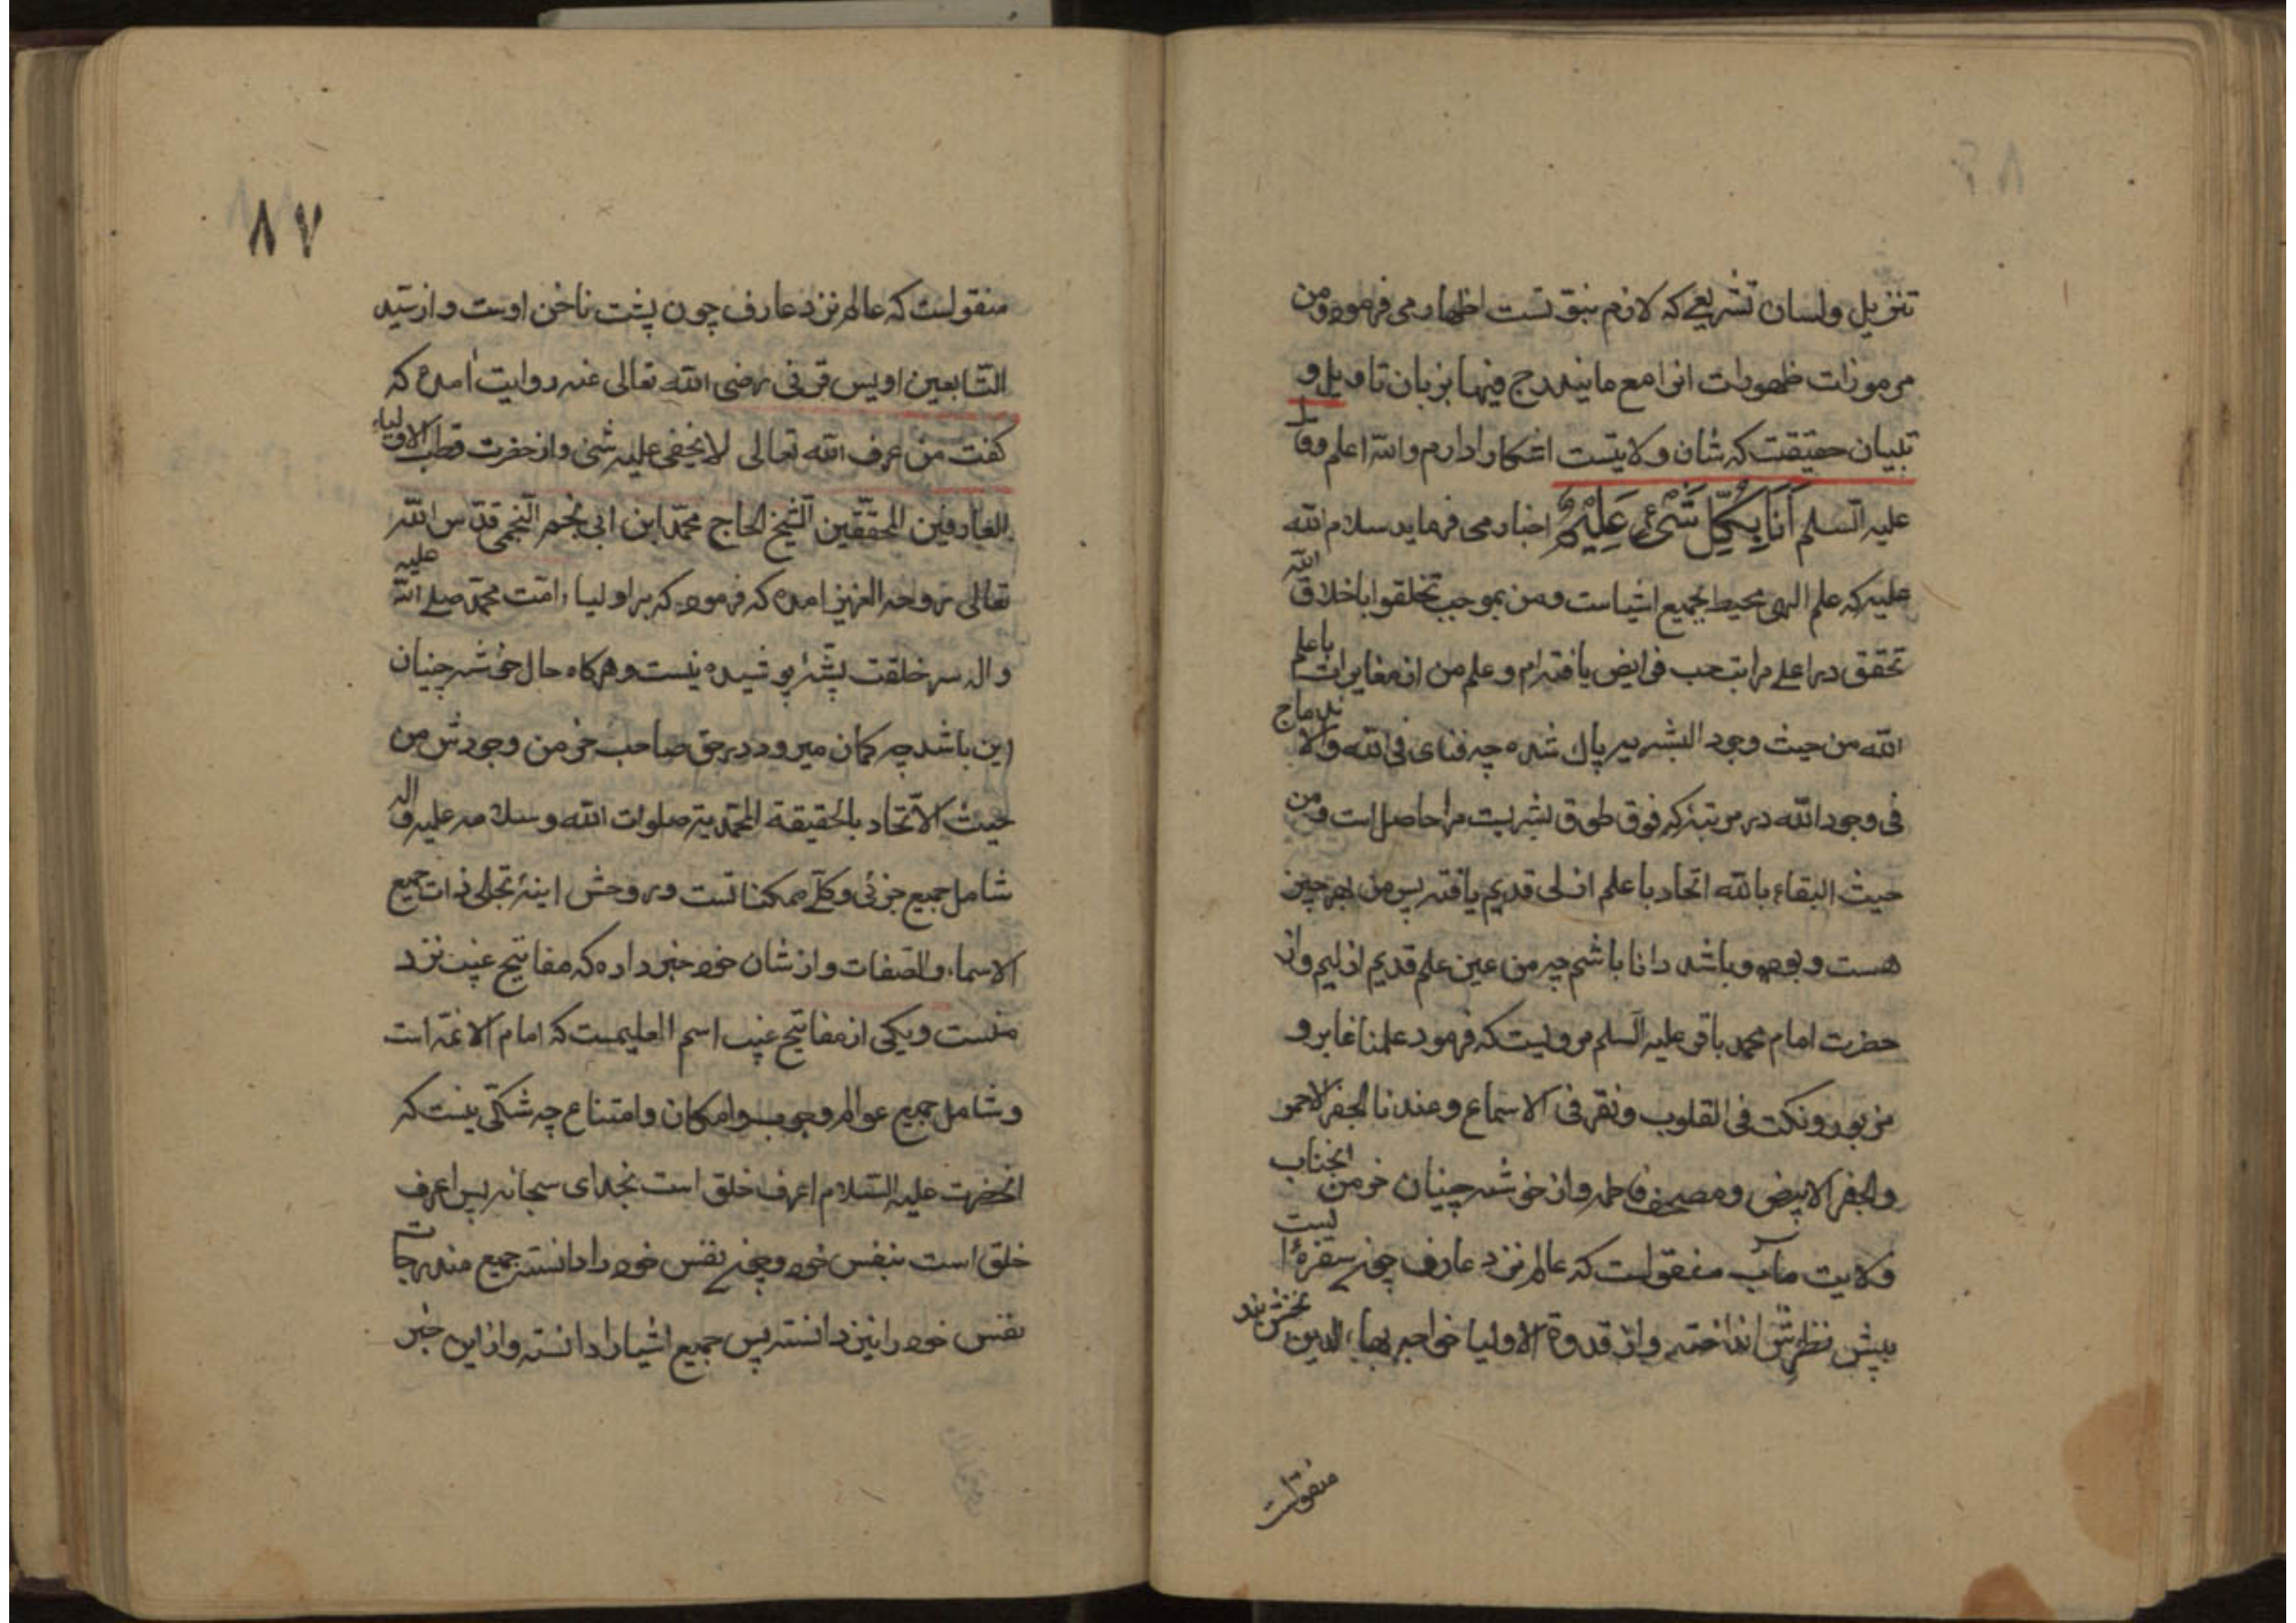 تنزیل ولسان تشریعی که لازم نبوتست اظهار می فرموده ومن
مرموزات ظهورات انرا مع ما یندرج فیها بزبان تاویل و
تبیان حقیقت که شان ولایتست اشکارا دارم والله اعلم وقال
علیه السلم اَنَا بِکُلِّ شَیْءٍ عَلِیْمٌ اخبار می فرماید سلام الله
علیه که علم الهی محیط بجمیع اشیاست ومن بموجب تخلقوا باخلاق الله
تحقق در اعلے مراتب حب فرایض یافته ام وعلم من از مغایرات باعلم
الله من حیث وجود البشریه پاک شده چه فنای فی الله والاندماج
فی وجود الله در مرتبۀ که فوق طوق بشریت مرا حاصل است ومن
حیث البقاء بالله اتحاد با علم ازلی قدیم یافته پس من بهرچیز
هست وبوده وباشد دانا باشم چه من عین علم قدیم ازلیم واز
حضرت امام محمد باقر علیه السلم مرویست که فرمود علمنا غابر و
مزبور ونکت فی القلوب ونقر فی الاسماع وعندنا الجفر الاحمر
والجفر الابیض ومصحف فاطمه واز خوشه چینان خرمن انجناب
ولایت مآب منقولست که عالم نزد عارف چون سفرۀ ایست
پیش نظرش انداخته واز قدوة الاولیا خواجه بهاء الدین نخش بند
منقولست
۸۷
منقولست که عالم نزد عارف چون پشت ناخن اوست واز سید
التابعین اویس قرنی رضی الله تعالی عنه روایت امده که
کفت من عرف الله تعالی لا یخفی علیه شئ واز حضرت قطب الاولیاء
العارفین المحققین الشیخ الحاج محمد ابن ابی نجم النجمی قدس الله
تعالی روحه العزیز امده که فرموده که بر اولیاء امت محمد صلے الله علیه
واله سر خلقت پشۀ پوشیده نیست وهرکاه حال خوشه چینان
این باشد چه کمان میرود در حق صاحب خرمن وجودش من
حیث الاتحاد بالحقیقة المحمدیة صلوات الله وسلامه علیه واله
شامل جمیع جزئی وکلّے ممکناتست وروحش اینۀ تجلی ذات جمیع
الاسماء والصفات واز شان خود خبر داده که مفاتیح غیب نزد
منست ویکی از مفاتیح غیب اسم العلیمست که امام الائمه است
وشامل جمیع عوالم وجوب وامکان وامتناع چه شکی نیست که
انحضرت علیه السلام اعرف خلق است بخدای سبحانه پس اعرف
خلق است بنفس خود وچون نفس خود را دانسته جمیع مندرجات
نفس خود را نیز دانسته پس جمیع اشیا را دانسته واز این خبر